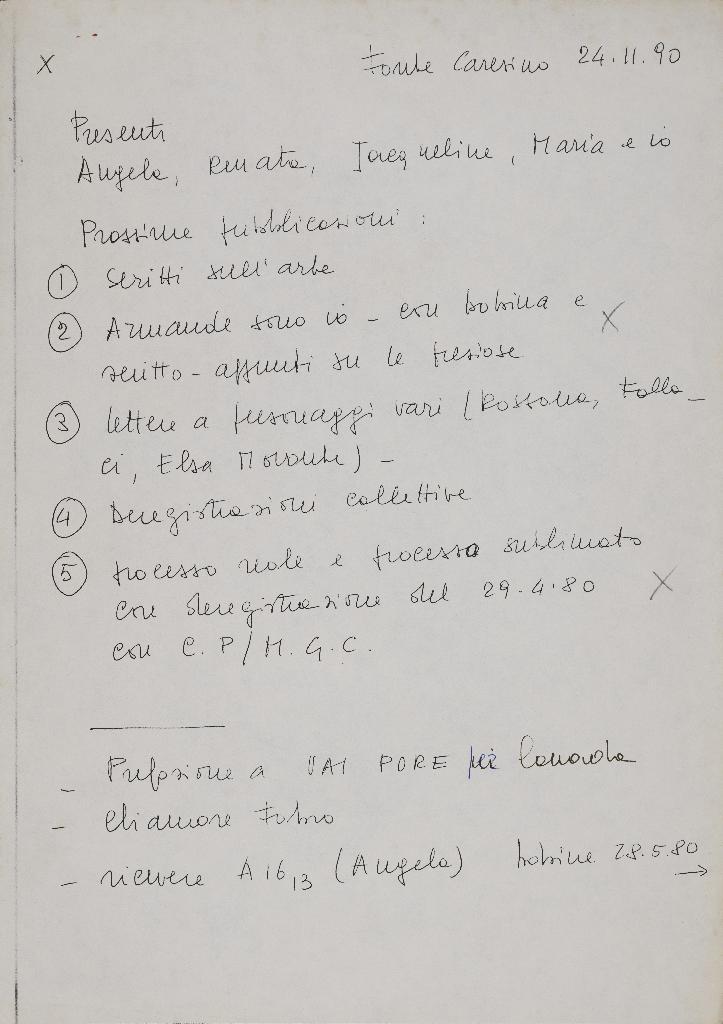 X
Fonte Cavesino 24.11.90
Presenti
Angela, Renata, Jacqueline, Maria e io
Prossime pubblicazioni :
1 Scritti sull'arte
2 Armande sono io - con bobina e X
scritto - appunti su le preziose
3 lettere a personaggi vari (Rossana, Falla_
ci, Elsa Morante) -
4 Deregistrazioni collettive
5 processo reale e processo sublimato
con deregistrazione del 29.4.80 X
con C.P/M.G.C.
- Prefazione a VAI PURE per
- Chiamare
- ricevere A16 13 (Angela) bobine 28.5.80
→